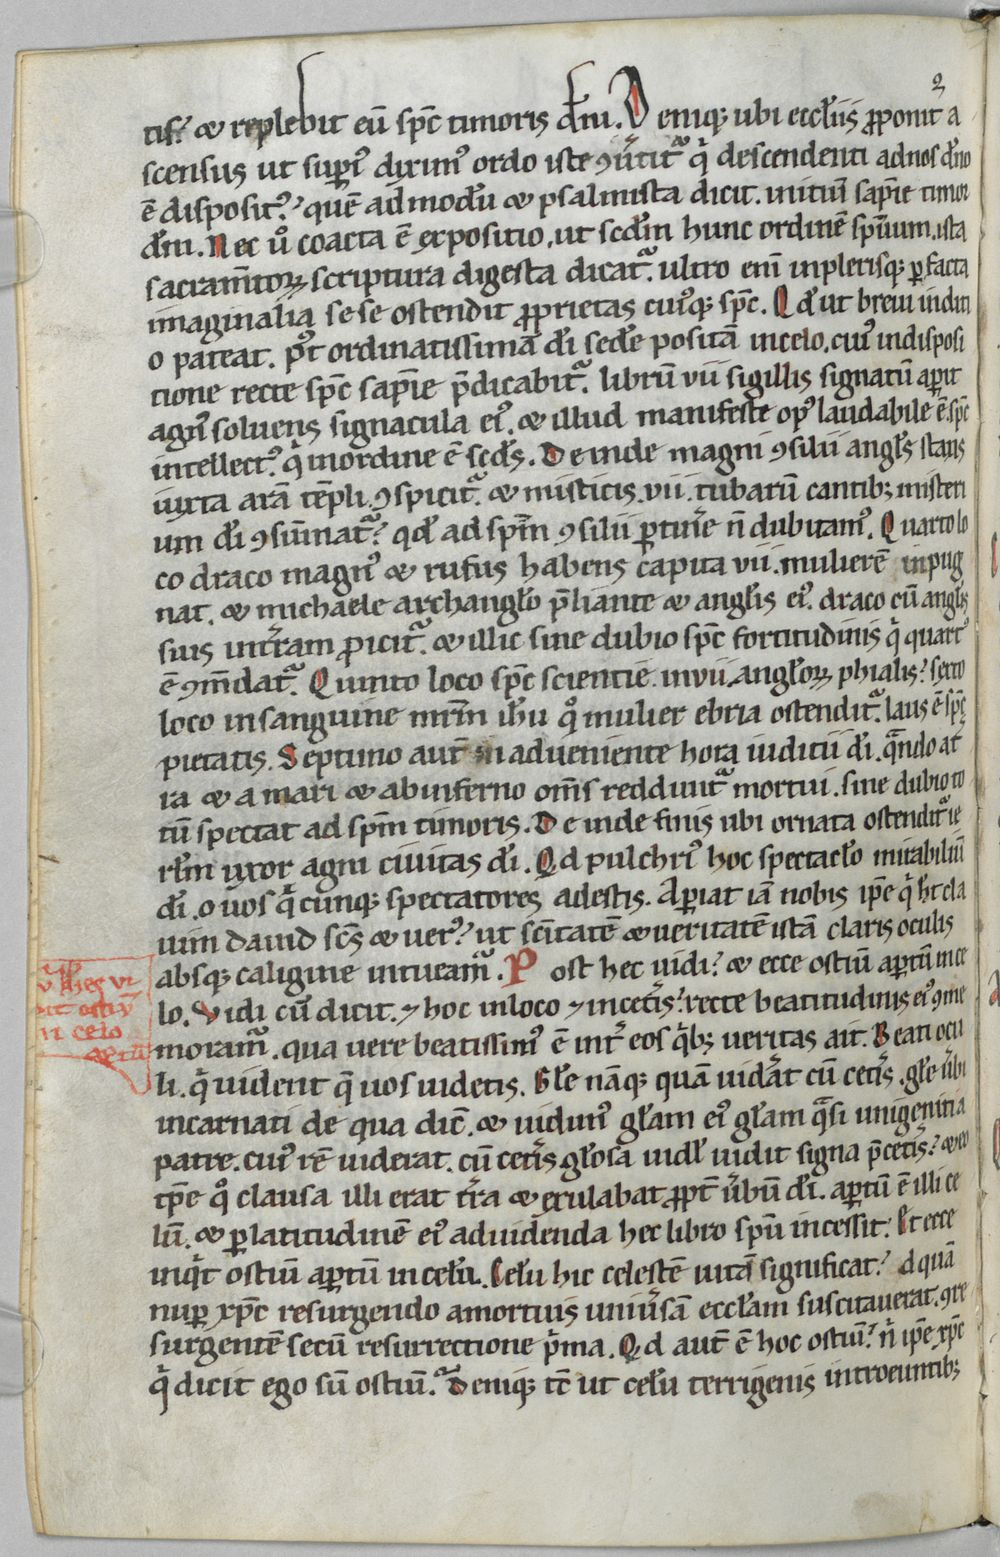 2
tis? & replebit eū sp̄c timoris dn̄i. Deniq; ubi eccl̄iis p̄ponit a
scensus ut supi᷒ diximꝰ ordo iste ꝯu̾tit᷑ q̇ descendenti ad nos dn̄o
ē dispositꝰ? quē ad modū & psalmista dicit. initiū sapīe timor
dn̄i. Nec u̾o coacta ē expositio, ut scd̄m hunc ordinē sp̄uum, ista
sacram̄toꝝ scriptura digesta dicat᷑. ultro enī in plerisq; ꝑ facta
imaginalia sese ostendit ꝓprietas cuiꝰq; sp̄c. Qd̄ ut breui inditi
o pateat. pꝰt ordinatissimā dī sedē positā in celo. cuiꝰ in disposi
tione recte sp̄c sapīe p̄dicabit᷑. librū vii sigillis signatū aꝑit
agnꝰ soluens signacula eiꝰ. & illud manifeste opꝰ laudabile ē. sp̄c
intellectꝰ. q̇ in ordine ē scd̄s. Deinde magni ꝯsilii angl̄s stans
iuxta arā tēpli ꝯspicit᷑. & misticis .vii. tubarū cantibꝫ misteri
um dī ꝯsūmat᷑? qd̄ ad sp̄m ꝯsilii ꝑtin̾e n̄ dubitamꝰ. Quarto lo
co draco magnꝰ & rufus habens capita vii. mulierē inpug
nat. & michaele archangl̄o p̄liante & angl̄is eiꝰ. draco cū angl̄is
suis in t̾ram ꝓicit᷑. & illic sine dubio sp̄c fortitudinis q̇ quartꝰ
ē ꝯm̄dat᷑. Quinto loco sp̄c scientie in vii. angl̄oꝝ phialis? sexto
loco in sanguine mr̄m ih̄u q̊ mulier ebria ostendit᷑. laus ē sp̄c
pietatis. Septimo aut̄ in adueniente hora iuditii dī. qn̄do a t̄
ra & a mari & ab inferno om̄s reddunt᷑ mortui. sine dubio to
tū spectat ad sp̄m timoris. Deinde finis ubi ornata ostendit᷑ ie
rl̄m uxor agni ciuitas dī. Qd pulchriꝰ hoc spectacl̄o mirabiliū
dī. o uos q̇cunq; spectatores adestis. Aꝑiat iā nobis ip̄e q̇ h̄t cla
uim dauid sc̄s & uerꝰ? ut sc̄itatē & ueritatē istā claris oculis
absq; caligine intueam᷑. Post hec uidi? & ecce ostiū aꝑtū in ce
lo. Vidi cū dicit. & hoc in loco & in cet̾is? recte beatitudinis eiꝰ ꝯme
moram᷑. qua uere beatissimꝰ ē int̾ eos q̇bꝫ ueritas ait. Beati ocu
li. q̇ uident q̄ uos uidetis. Gl̄e nāq; quā uid̾at cū cet̾is. gl̄e u̾bi
incarnati de qua dic̄. & uidimꝰ gl̄am eiꝰ gl̄am q̄si unigeniti a
patre. cuiꝰ rē uiderat. cū cet̾is gl̄osa uidl̄ uidit signa p̄ cet̾is? & eo
tp̄e q̊ clausa illi erat t̾ra & exulabat ꝓpt̾ u̾bū dī. aꝑtū ē illi ce
lū. & ꝑ latitudinē eiꝰ ad uidenda hec libro sp̄u incessit. Et ecce
inq̇t ostiū aꝑtū in celū. Celū hic celestē uitā significat? ad quā
nuꝑ xp̄c resurgendo a mortuis uniu̾sā eccl̄am suscitauerat. ꝯre
surgentē secū resurrectione ṗma. Qd aut̄ ē hoc ostiū? n̄ ip̄e xp̄c
q̇ dicit ego sū ostiū. Deniq; tc̄ ut celū terrigenis introeuntibꝫ
hec ui
ostiū
in celo